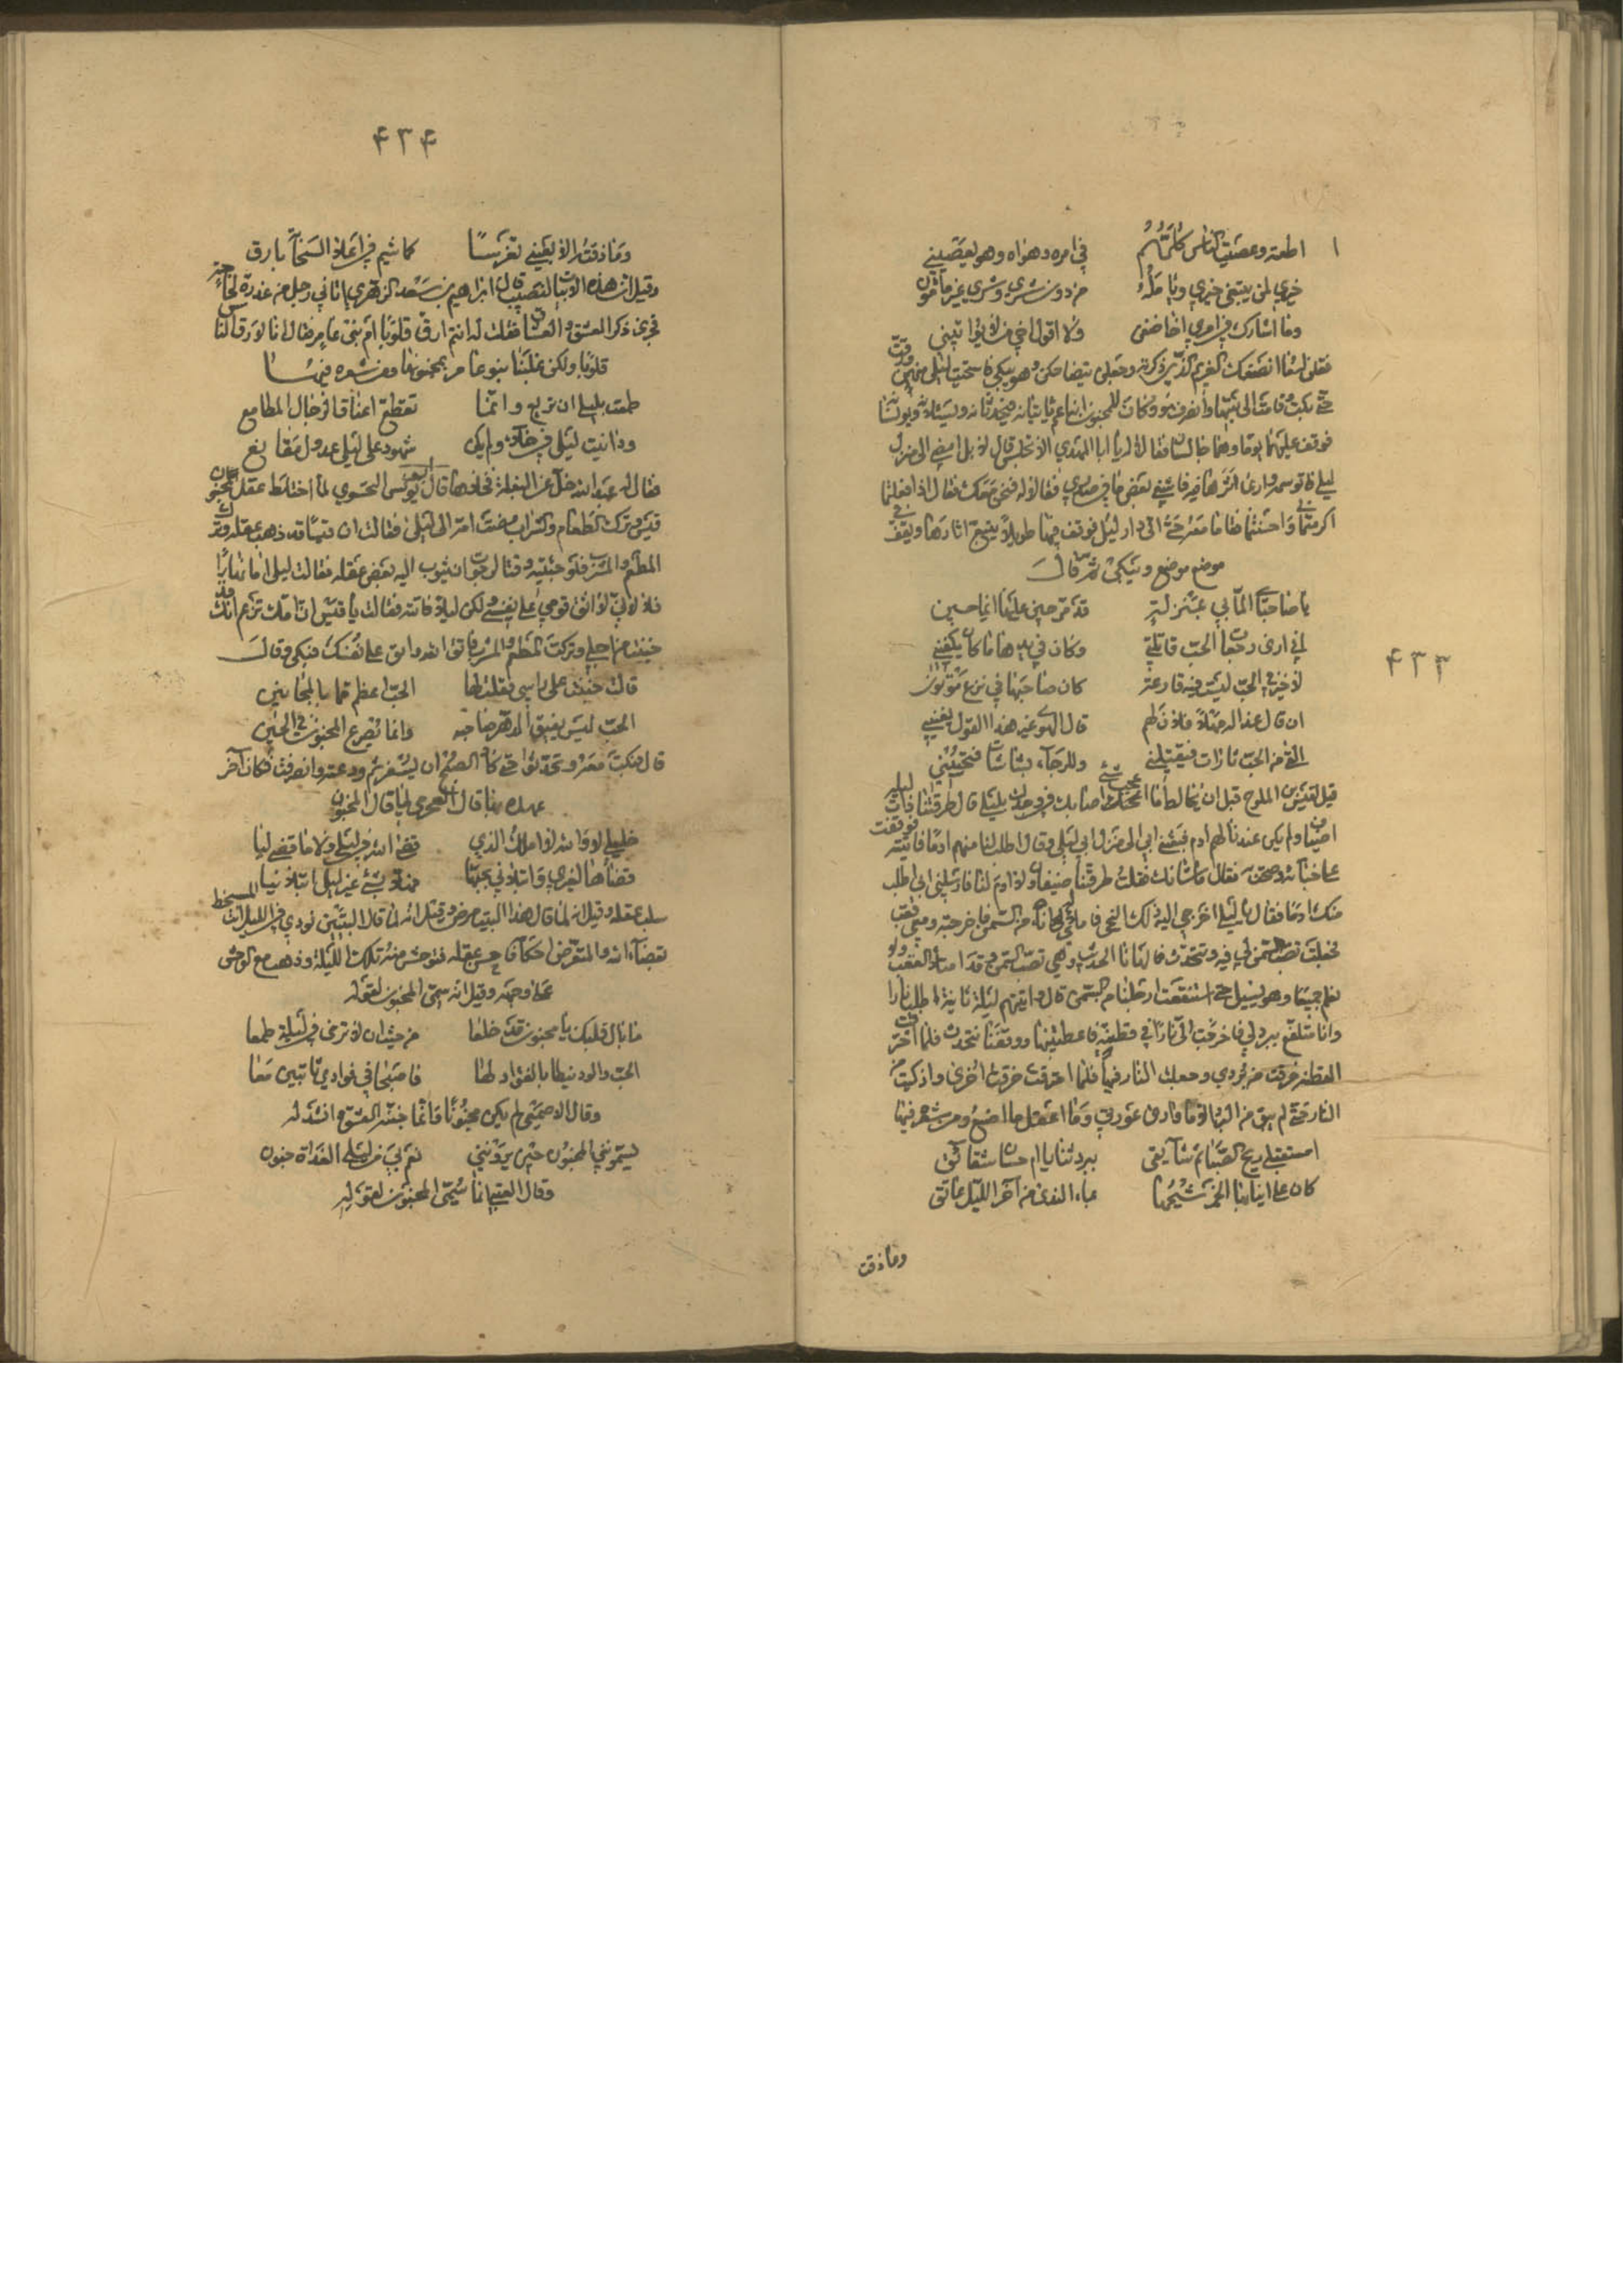 ۴۳۳
اطعته وعصيت الناس كلهم في امره وهواه وهو يعصيني
خيري لمن يبتغي خيري ويامله من دون شري وشري غير مامون
وما اشارك في امري اخا ضعف ولا اقول اخي من لا يواتيني
فقلن له ما انصفك الغريم الذي ذكرته وجعلن يتضاحكن وهو يبكي فاستحيت ليلى منهن ورقت
حتى بكت وقامت الى بيتها وانصرف هو وكان للمجنون ابنا عم ياتيانه فيحدثانه ويسليانه ويونسانه
فوقف عليهما يوما وهما جالسان فقالا له يا ابا المهدي الا تجلس قال لا بل امضي الى منزل
ليلى فاتوسمه وارى اثرها فيه فاشفي بعض ما في صدري فقالا له فنحن معك فقال اذا فعلتما
اكرمتما واحسنتما فقاما معه حتى اتى دار ليلى فوقف بها طويلا يتبع اثارها ويقف في
موضع موضع ويبكي ثم قال
يا صاحبي الما بي بمنزلة قد مر حين عليها ايما حين
اني ارى رجعات الحب قاتلتي وكان في بدئها ما كان يكفيني
لا خير في الحب ليست فيه قارعة كان صاحبها في نزع موتون
ان قال عذاله مهلا فلان لهم قال الهوى غير هذا القول يعنيني
القى من الحب تارات فيقتلني وللرجاء بشاشات فتحييني
قيل لقيس بن الملوح قبل ان يخالط ما اعجب شيء اصابك في وجدك بليلى قال طرقنا ذات ليلة
اضياف ولم يكن عندنا لهم ادم فبعثني ابي الى منزل ابي ليلى وقال اطلب لنا منهم ادما فاتيته فوقفت
على خبائه وصحت فقال ما شانك فقلت طرقنا ضيفان ولا ادم لنا فارسلني ابي اطلب
منك ادما فقال يا ليلى اخرجي اليه ذلك النحي فاملئي له اناءه من السمن فاخرجته ومعي قعب
فجعلت تصب السمن فيه ونتحدث فالهانا الحديث وهي تصب السمن وقد امتلا القعب ولا
نعلم جميعا وهو يسيل حتى استنقعت ارجلنا من السمن قال واتيتهم ليلة ثانية اطلب نارا
وانا متلفع ببرد لي فاخرجت الي نارا في قطنة فاعطتنيها ووقفنا نتحدث فلما احترقت
القطنة خرقت من بردي وجعلت النار فيها فلما احترقت خرقت اخرى واذكيت بها
النار حتى لم يبق من البرد الا ما وارى عورتي وما اعقل ما اصنع ومن شعره فيها
امستقبلي ريح الصبا ثم شايقي ببرد ثنايا ام حسان شقائق
كان على انيابها الخمر شجها بماء الندى من آخر الليل عاتق
وما ذقت
۴۳۴
وما ذقته الا بعيني تفرسا كما شيم في اعلا السحابة بارق
وقيل ان هذه الابيات لنصيب قال ابراهيم بن سعد الزهري اتاني رجل من عذرة لحاجة
فجرى ذكر العشق والعشاق فقلت له انتم ارق قلوبا ام بني عامر فقال انا لارق الناس
قلوبا ولكن غلبتنا بنو عامر بمجنونها ومن شعره فيها
طمعت بليلى ان تريع وانما تقطع اعناق الرجال المطامع
وداينت ليلى في خلاء ولم يكن شهود على ليلى عدول مقانع
قيس وترك الطعام والشراب مضت امه الى ليلى فقالت ان قيسا قد ذهب عقله وترك
المطعم والمشرب فلو جئتيه وقتا لرجوت ان يثوب اليه بعض عقله فقالت ليلى اما نهارا
فلا لاني لا آمن قومي على نفسي ولكن ليلا فاتته فقالت يا قيس ان امك تزعم انك
جننت من اجلي وتركت المطعم والمشرب فاتق الله وابق على نفسك فبكى وقال
قالت جننت على راسي فقلت لها الحب اعظم مما بالمجانين
الحب ليس يفيق الدهر صاحبه وانما يصرع المجنون في الحين
قال فبكت معه وتحدثوا حتى كاد الصبح ان يسفر ثم ودعته وانصرفت فكان آخر
عهده بها قال ابن العجمي لما قال المجنون
خليلي لا والله لا املك الذي قضى الله في ليلى ولا ما قضى ليا
قضاها لغيري وابتلاني بحبها فهلا بشيء غير ليلى ابتلانيا
بقضاء الله والمتعرض احكامه
على وجهه وقيل انه سمي المجنون لقوله
ما بال قلبك يا مجنون قد خلعا من حيث ان لا ترى في نيله طمعا
الحب والود نيطا بالفؤاد لها فاصبحا في فوادي ثابتين معا
وقال الاصمعي لم يكن مجنونا وانما جننه العشق وانشد له
يسمونني المجنون حين يرونني نعم بي من ليلى الغداة جنون
وقال العتبي انما سمي المجنون لقوله